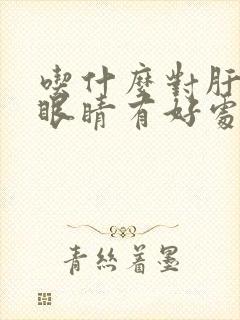 喫什麼對肝
眼睛有好處
青絲着墨